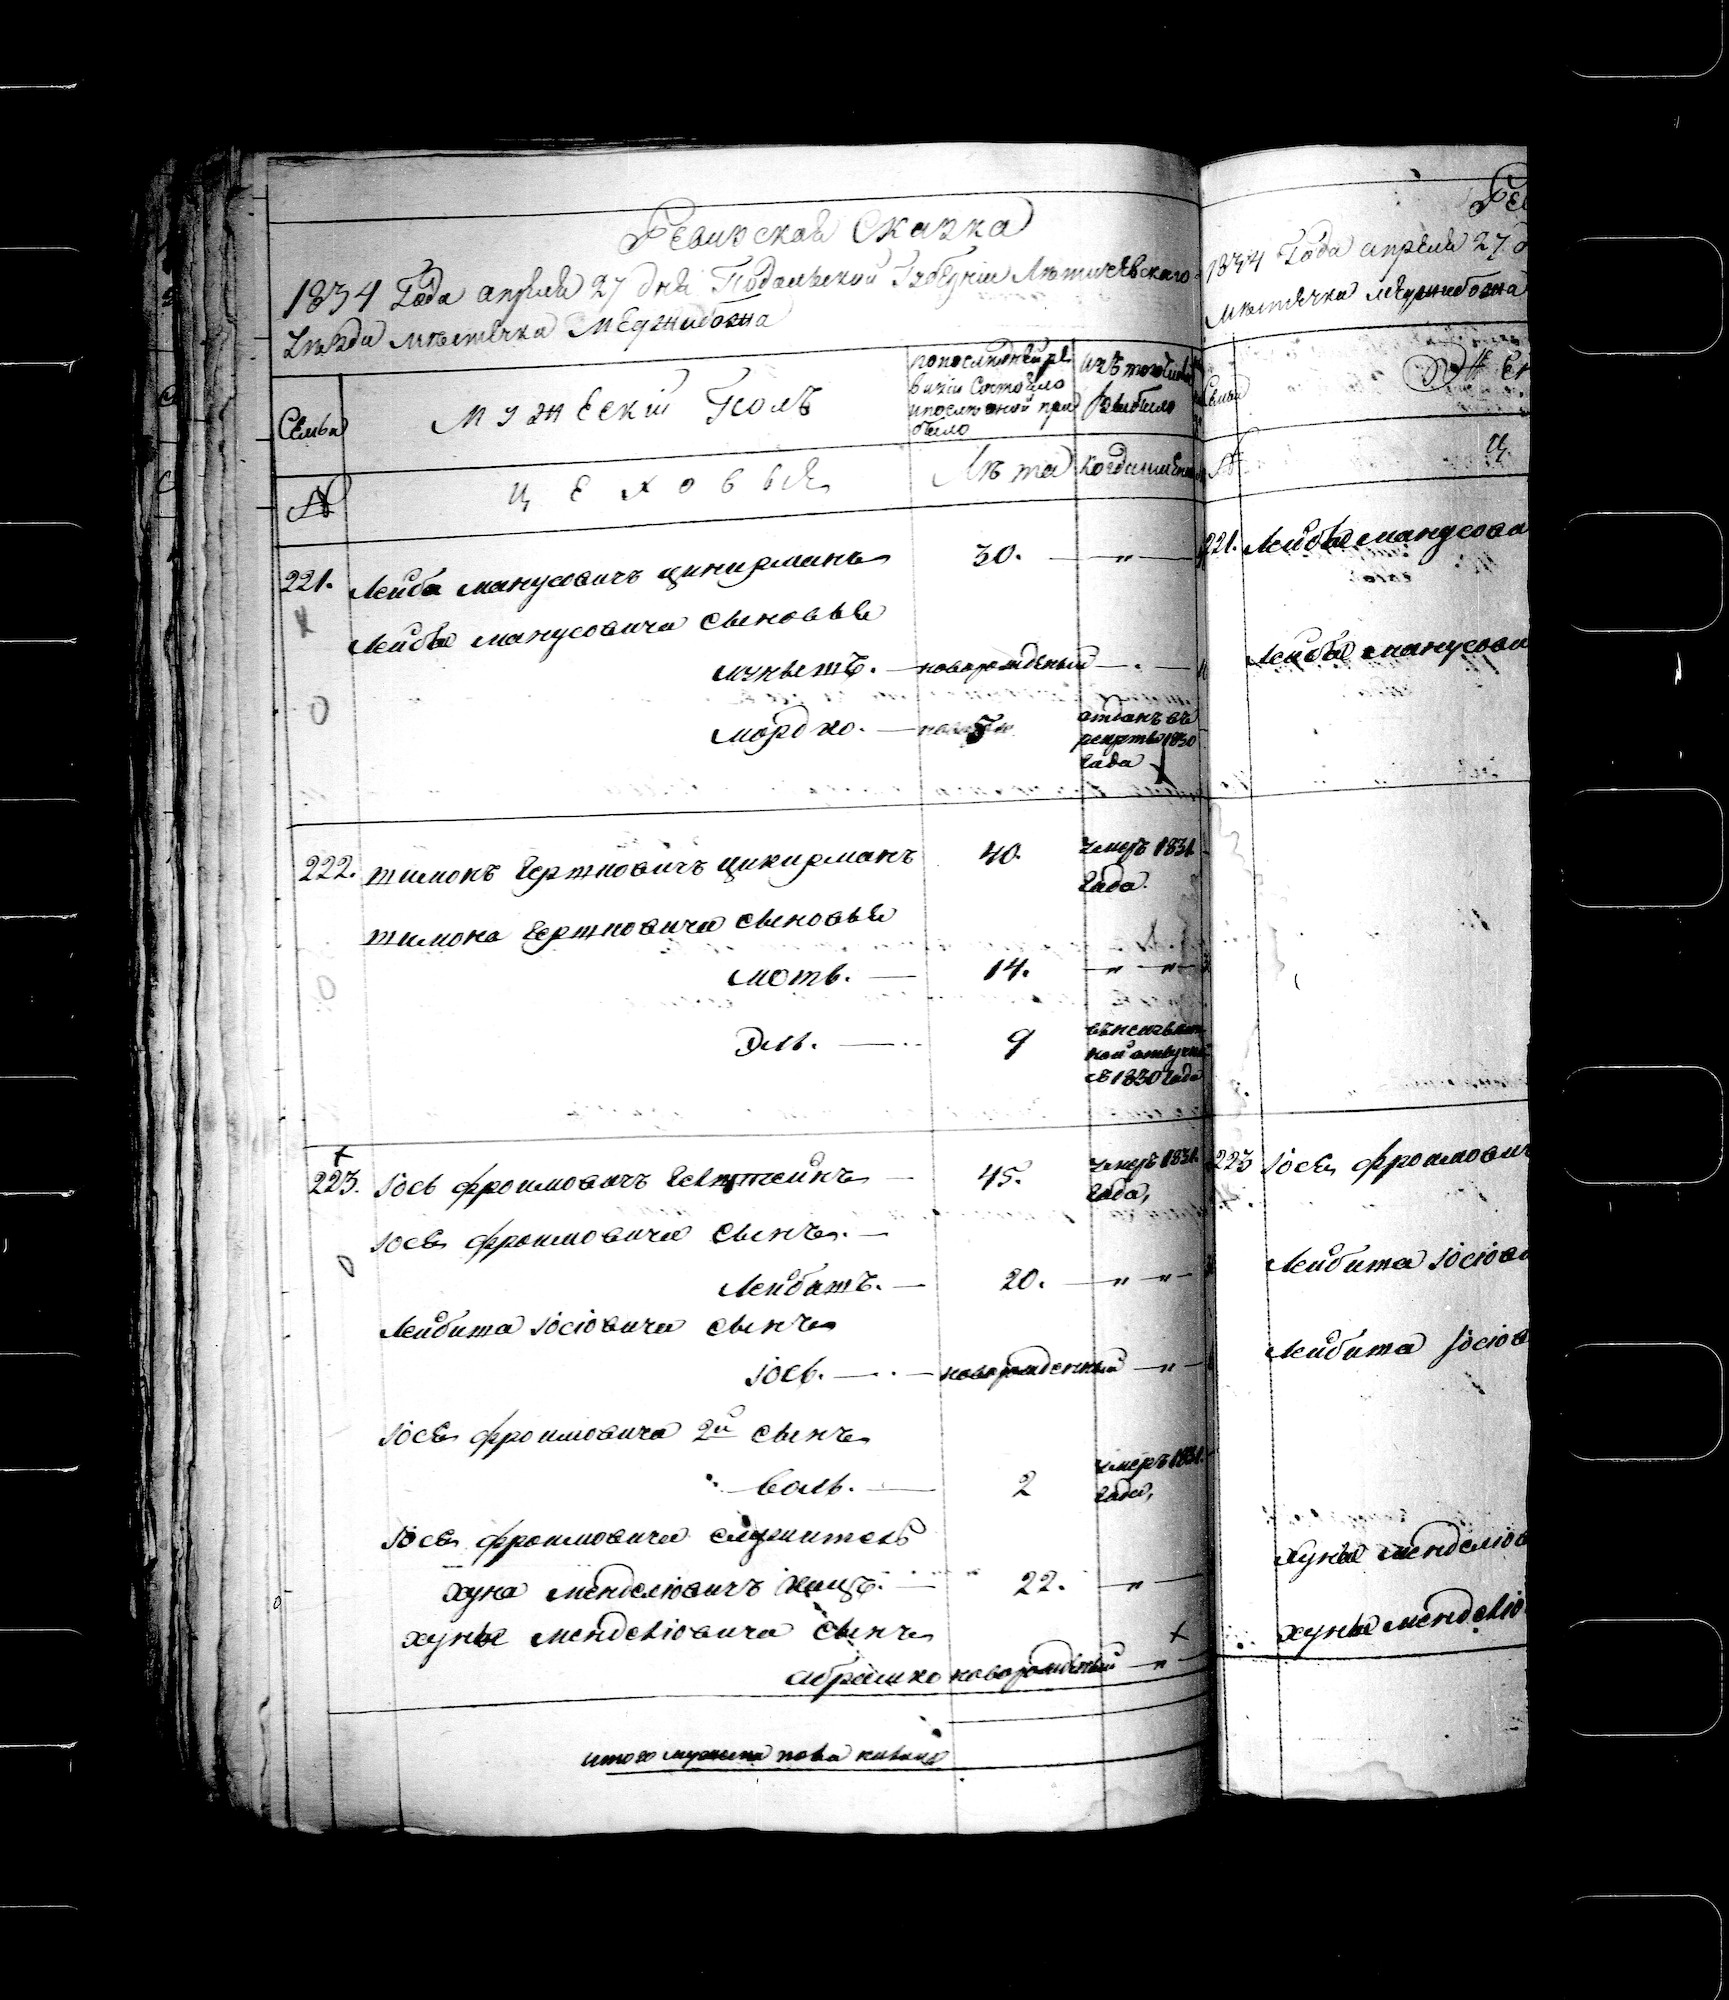 Ревизская Сказка
1834 Года апреля 27 дня Подольской Губернiи Летичевскаго
Уезда местечка Меджибожа
Семьи
Мужескiй Полъ
по последней ре
визiи Состояло
и после оной при
было
изъ того числа
выбыло
№
Цеховые
Лета
Когда именно
221.
Лейба Манусовичъ Цикирманъ
30.
Лейбы Манусовича сыновья
новорожденный
Мордко.
5
отданъ въ
рекруты 1830
Года
222.
Тимонъ Гершковичъ Цикирманъ
40.
умеръ 1831
Года.
Тимона Гершковича сыновья
Моть.
14.
Эль.
9
въ неизвест
ной отлучке
съ 1830 Года
223.
Iось Фроимовичъ
45.
умеръ 1831
Года,
Iося Фроимовича сынъ
Лейбишъ.
20.
Лейбиша Iосiовича сынъ
Iось.
новорожденный
Iося Фроимовича 2й сынъ
Воль.
2
умеръ 1831
Года,
Iося Фроимовича служитель
Хуна Менделiовичъ
22.
Хуны Менделiовича сынъ
Абрамко новорожденный
Итого мужеска пола
1834 Года апреля 27
местечка Меджибожа
Семьи
№
221. Лейбы Манусова
Лейбы Манусови
223
Iося Фроимович
Лейбиша Iосiови
Лейбиша Iосiов
Хуны Менделiов
Хуны Менделiо